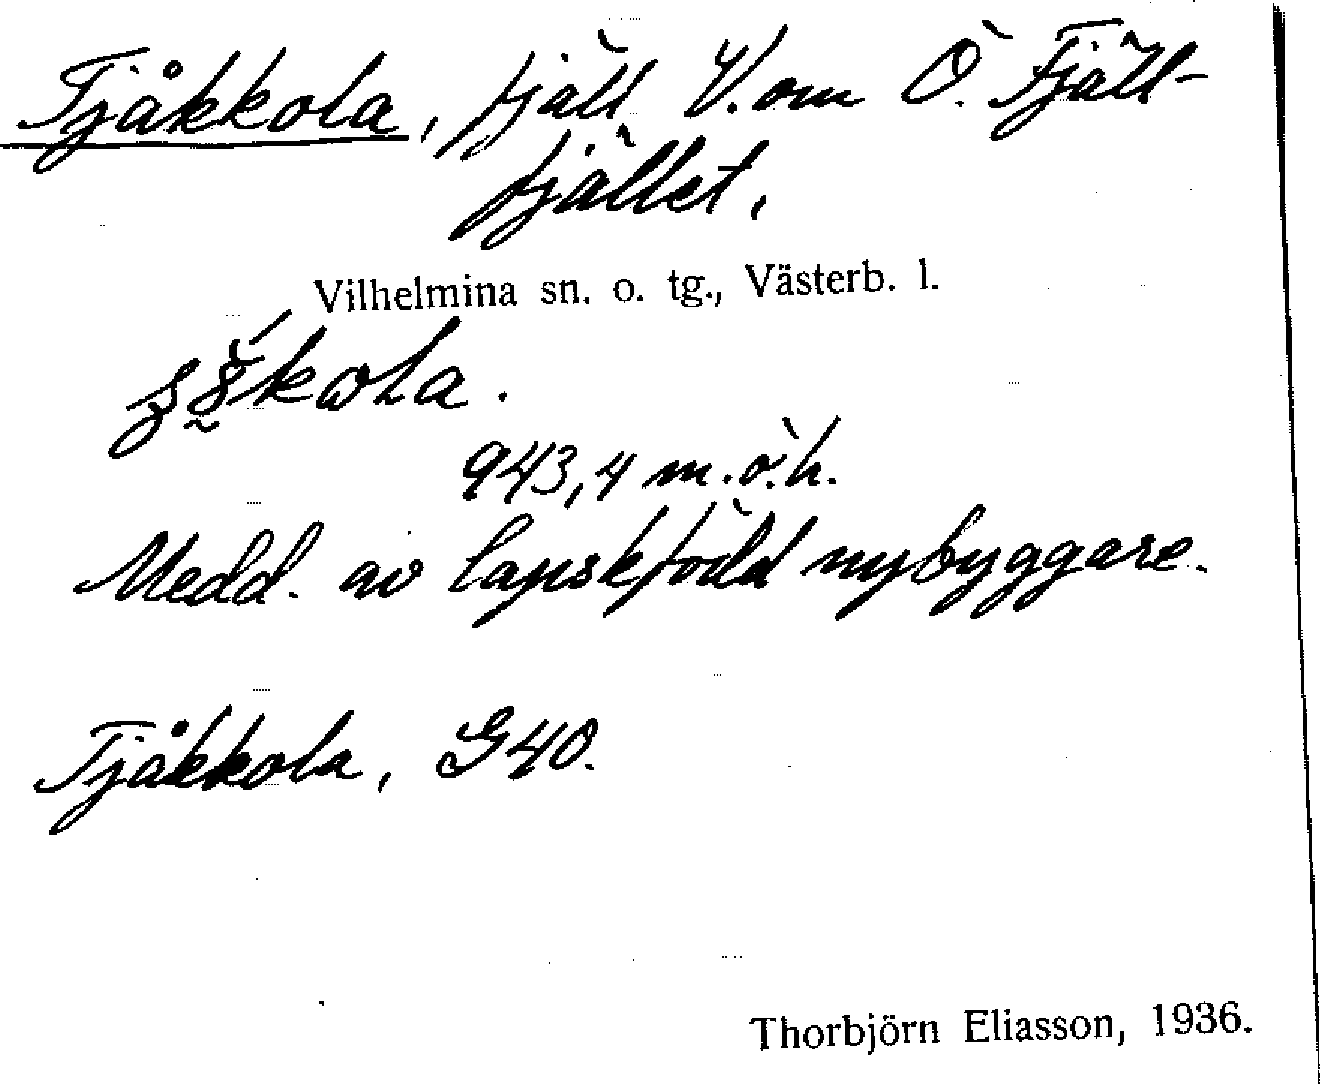 Tjåkkola, fjäll V. om Ö. Fjäll-
fjället.
Vilhelmina sn. o. tg., Västerb. l.
943,4 m.ö.h.
Medd. av lapskfödd nybyggare.
Tjåkkola, G40.
Thorbjörn Eliasson, 1936.